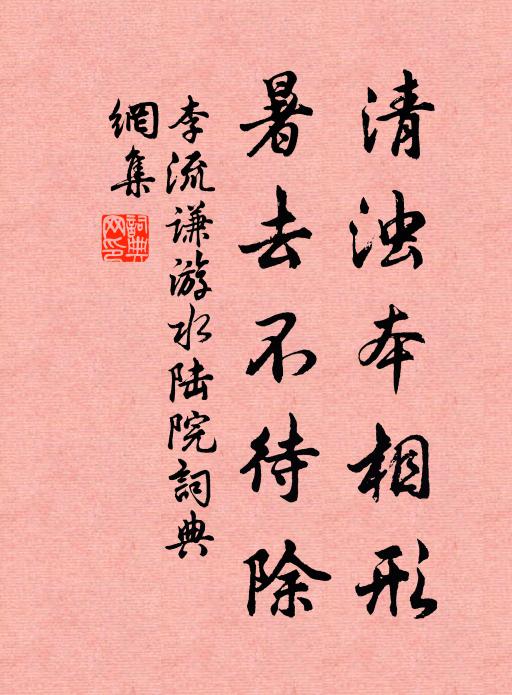 清浊本相形
暑去不待除
李流谦游水陆院詞典
網集
詞典
网印